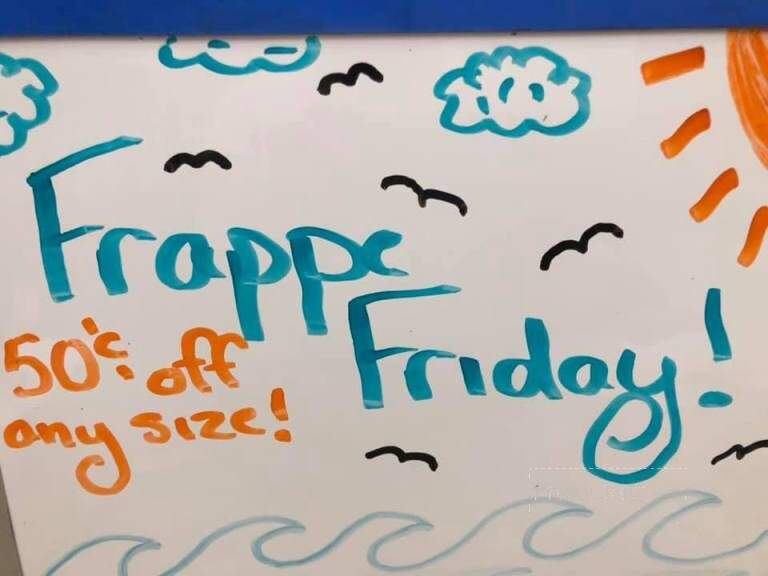 Frappe
Friday!
50¢ off
any size!